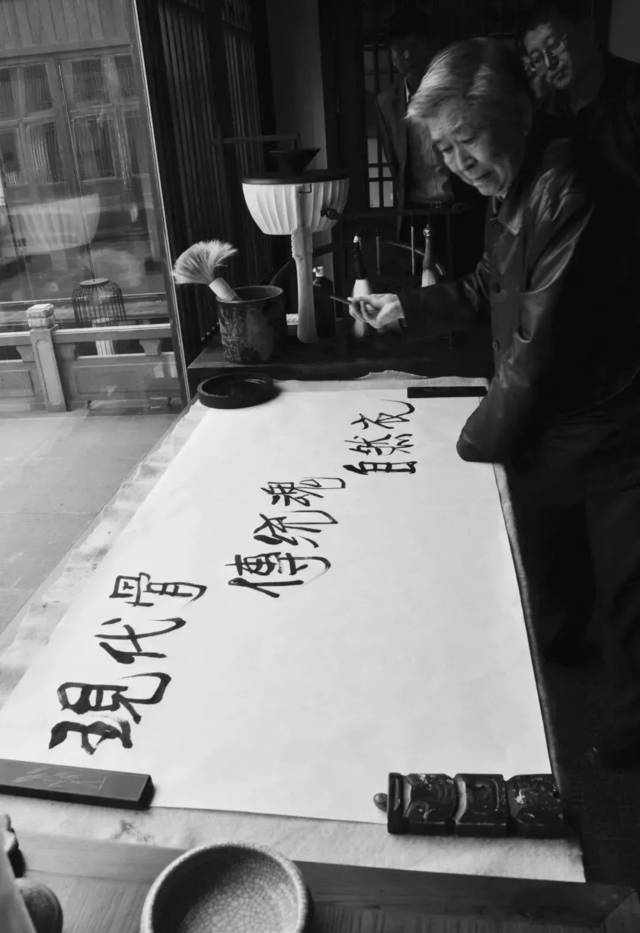 現代骨
傳統魂
自然衣